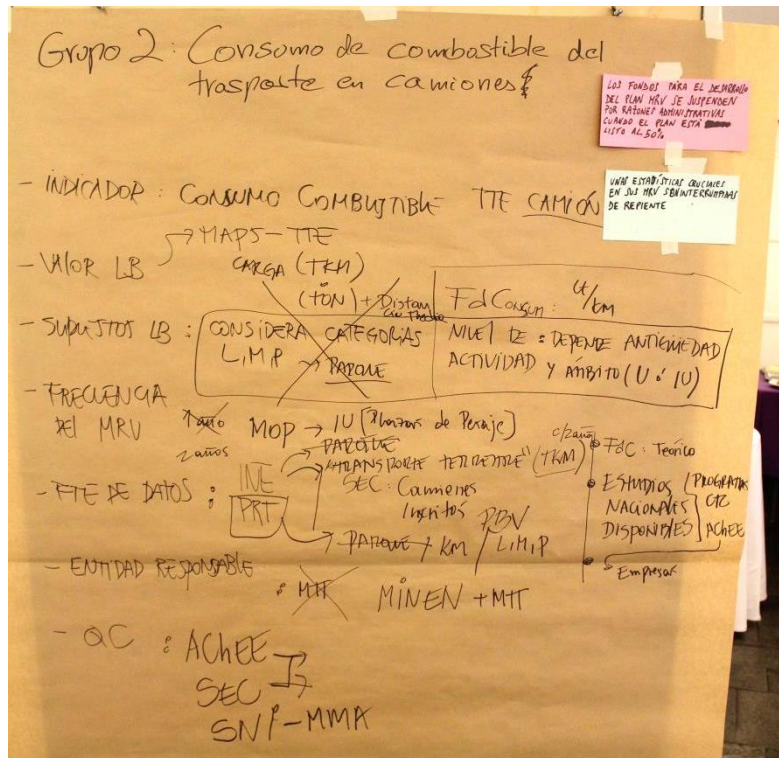 Grupo 2: Consumo de combostible del
trasposte en camiones
LOS FONDOS PARA EL DESARROLLO
DEL PLAN MRV SE SUSPENDEN
POR RAZONES ADMINISTRATIVAS
CUANDO EL PLAN ESTÁ
LISTO AL 50%
UNAS ESTADÍSTICAS CRUCIALES
EN SUS MRV SON INTERRUMPIDAS
DE REPIENTE
- INDICADOR : CONSUMO COMBUSTIBLE TTE CAMIÓN
→ MAPS - TTE
- VALOR LB
CARGA (TKM)
(TON) + Distan
- SUPUESTOS LB : CONSIDERA CATEGORÍAS
L, M, P → PARQUE
FdConsum : lt/km
NIVEL DE : DEPENDE ANTIGUEDAD
ACTIVIDAD Y AMBITO (U ó IU)
- FRECUENCIA
DEL MRV
1 año
2 años
MOP → IU [Plazas de Peaje]
- FTE DE DATOS : INE
PRT
PARQUE
"TRANSPORTE TERRESTRE" (TKM)
SEC: Camiones
Inscritos
→ PARQUE + KM / L, M, P
PBV
c/2 años
FdC : Teórico
ESTUDIOS
NACIONALES
DISPONIBLES
PROGRAMAS
AChEE
Empresas
- ENTIDAD RESPONSABLE
: MTT MINEN + MTT
- QC : AChEE
SEC
SNI - MMA